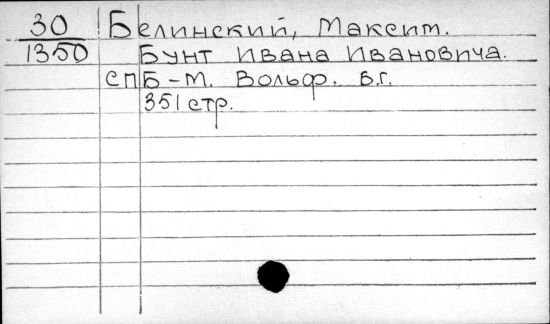 30 Белинский, Максим.
1350 Бунт Ивана Ивановича.
СПБ-М. Вольф. Б.г.
351 стр.